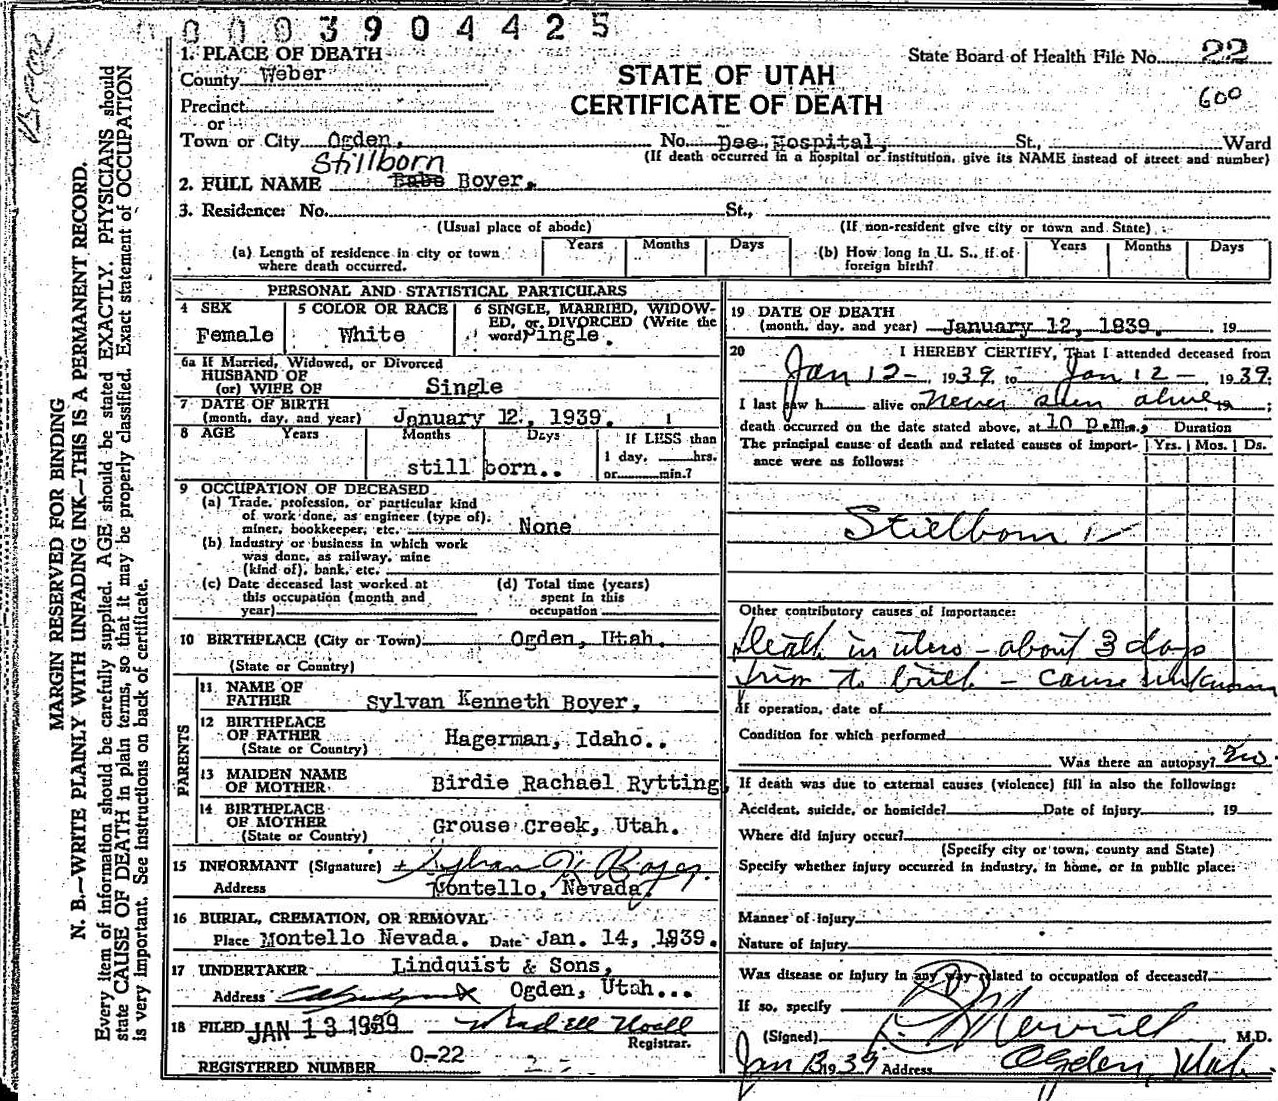 0003904425
1. PLACE OF DEATH
County Weber
State Board of Health File No. 22
600
STATE OF UTAH
CERTIFICATE OF DEATH
Precinct
or
Town or City Ogden, No. Dee Hospital, St., Ward
(If death occurred in a hospital or institution, give its NAME instead of street and number)
Stillborn
2. FULL NAME Babe Boyer.
3. Residence: No. St.,
(Usual place of abode) (If non-resident give city or town and State)
(a) Length of residence in city or town where death occurred. Years Months Days
(b) How long in U. S., if of foreign birth? Years Months Days
PERSONAL AND STATISTICAL PARTICULARS
4 SEX Female
5 COLOR OR RACE White
6 SINGLE, MARRIED, WIDOWED, or DIVORCED (Write the word) Single.
6a If Married, Widowed, or Divorced
HUSBAND OF
(or) WIFE OF Single
7 DATE OF BIRTH
(month, day, and year) January 12, 1939.
8 AGE Years Months Days If LESS than 1 day, hrs. or min.?
still born..
9 OCCUPATION OF DECEASED
(a) Trade, profession, or particular kind
of work done, as engineer (type of),
miner, bookkeeper, etc. None
(b) Industry or business in which work
was done, as railway, mine
(kind of), bank, etc.
(c) Date deceased last worked at this occupation (month and year)
(d) Total time (years) spent in this occupation
10 BIRTHPLACE (City or Town) Ogden, Utah.
(State or Country)
PARENTS
11 NAME OF FATHER Sylvan Kenneth Boyer,
12 BIRTHPLACE OF FATHER (State or Country) Hagerman, Idaho..
13 MAIDEN NAME OF MOTHER Birdie Rachael Rytting,
14 BIRTHPLACE OF MOTHER (State or Country) Grouse Creek, Utah.
15 INFORMANT (Signature) Sylvan K. Boyer.
Address Montello, Nevada.
16 BURIAL, CREMATION, OR REMOVAL
Place Montello Nevada. Date Jan. 14, 1939.
17 UNDERTAKER Lindquist & Sons,
Address Ogden, Utah...
18 FILED JAN 13 1939
Registrar.
REGISTERED NUMBER 0-22
19 DATE OF DEATH
(month, day, and year) January 12, 1939. , 19
20 I HEREBY CERTIFY, That I attended deceased from
Jan 12 -, 1939, to Jan 12 -, 1939;
I last saw h alive on never seen alive, 19 ;
death occurred on the date stated above, at 10 p.m., Duration
The principal cause of death and related causes of importance were as follows: Yrs. Mos. Ds.
Stillborn
Other contributory causes of importance:
Death in utero - about 3 days
prior to birth - cause unknown
If operation, date of
Condition for which performed
Was there an autopsy? no
If death was due to external causes (violence) fill in also the following:
Accident, suicide, or homicide? Date of injury , 19
Where did injury occur?
(Specify city or town, county and State)
Specify whether injury occurred in industry, in home, or in public place:
Manner of injury
Nature of injury
Was disease or injury in any way related to occupation of deceased?
If so, specify
(Signed) Merrill, M.D.
Jan 13 1939 Address Ogden, Utah
MARGIN RESERVED FOR BINDING
N. B.—WRITE PLAINLY WITH UNFADING INK—THIS IS A PERMANENT RECORD.
Every item of information should be carefully supplied. AGE should be stated EXACTLY. PHYSICIANS should
state CAUSE OF DEATH in plain terms, so that it may be properly classified. Exact statement of OCCUPATION
is very important. See instructions on back of certificate.